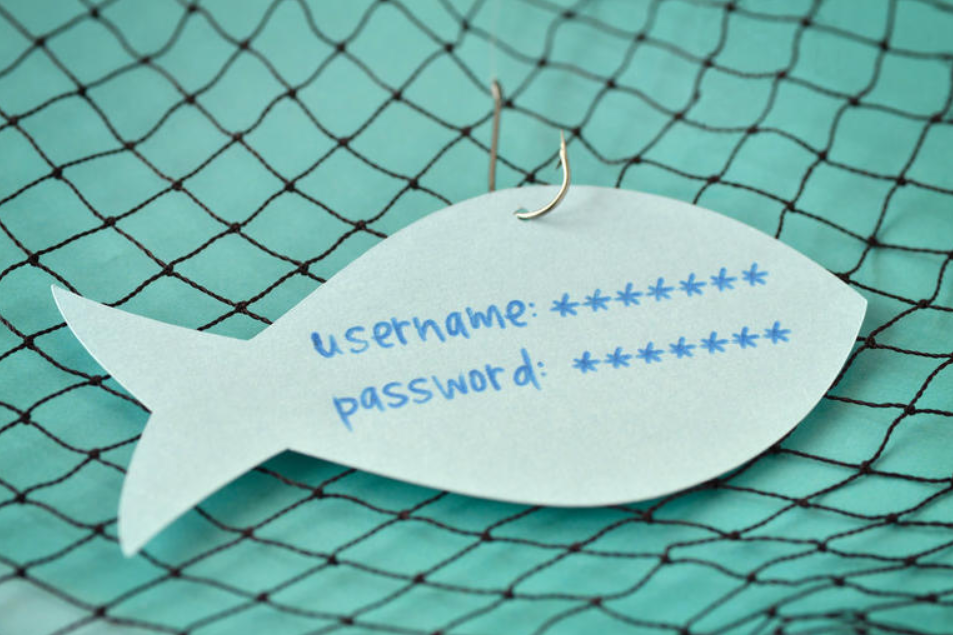 username: *******
password: *******